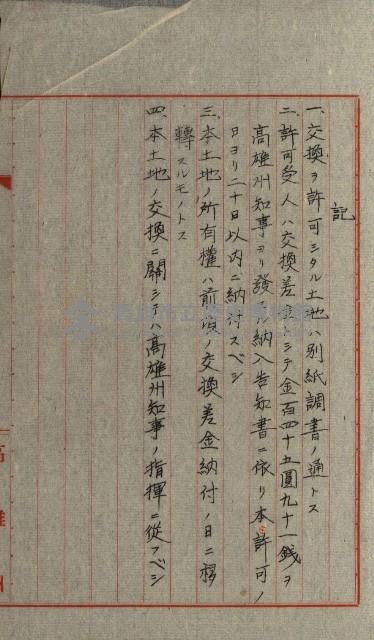 記
一、交換ヲ許可シタル土地ハ別紙調書ノ通トス
二、許可受人ハ交換差金トシテ金百四十五圓九十一錢ヲ
高雄州知事ヨリ發スル納入告知書ニ依リ本許可ノ
日ヨリ二十日以内ニ納付スベシ
三、本土地ノ所有權ハ前項ノ交換差金納付ノ日ニ移
轉スルモノトス
四、本土地ノ交換ニ關シテハ高雄州知事ノ指揮ニ從フベシ
高雄州